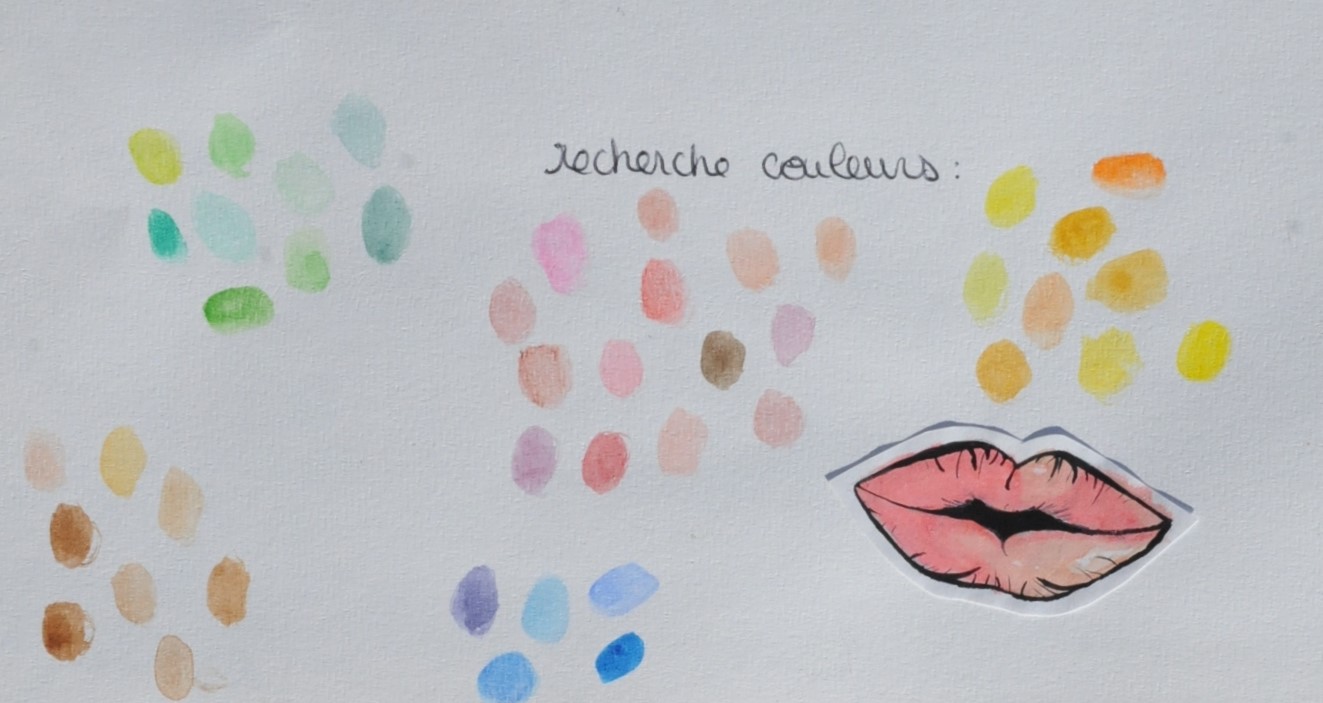 recherche couleurs :